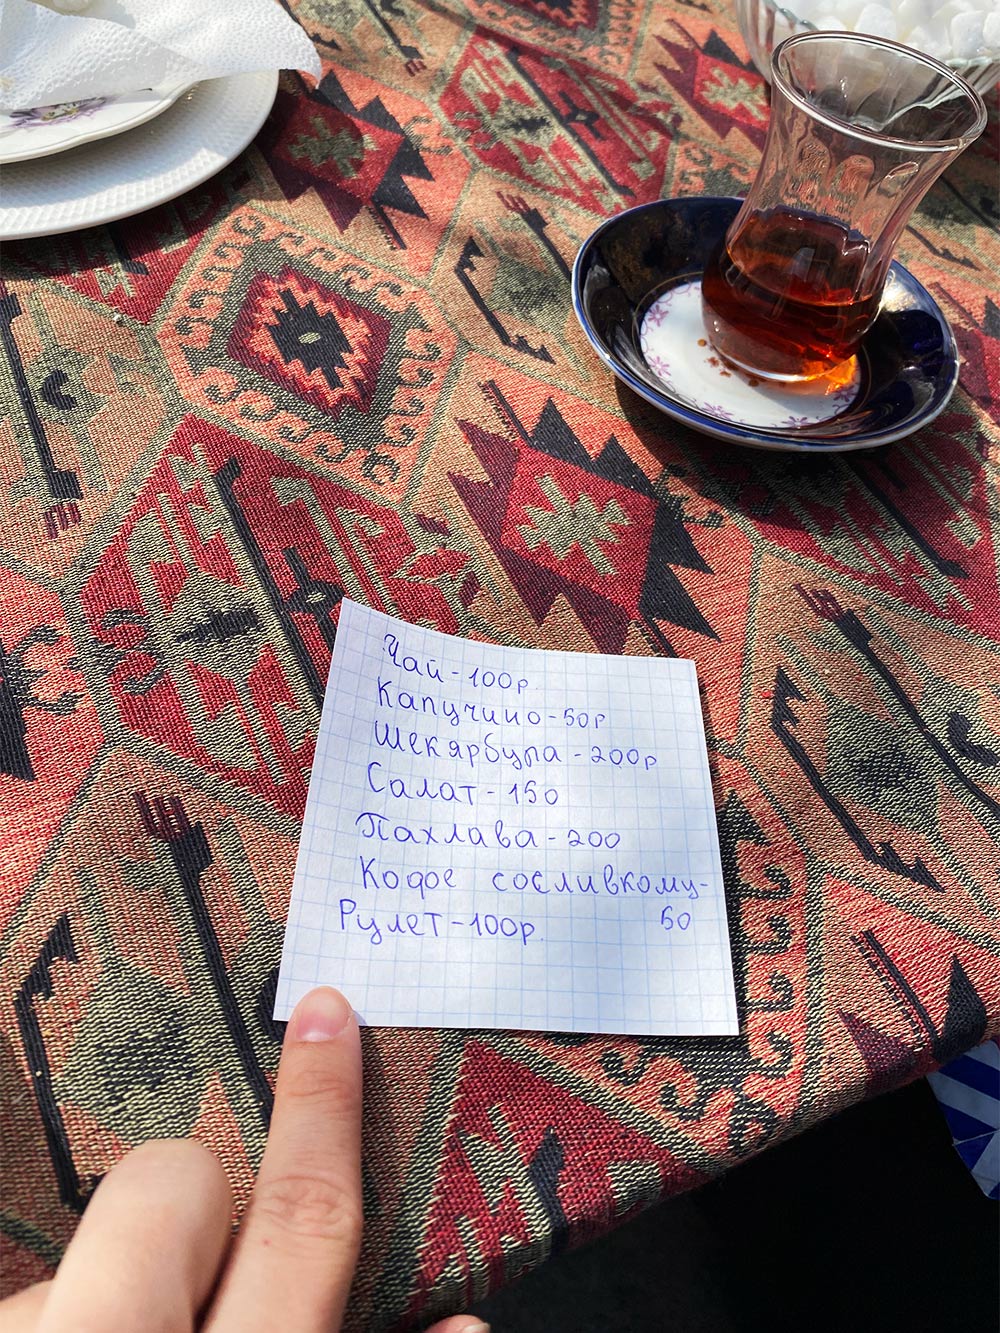 Чай-100р.
Капучино-50р
Шекярбура-200р
Салат-150
Пахлава-200
Кофе сосливкому-
50
Рулет-100р.